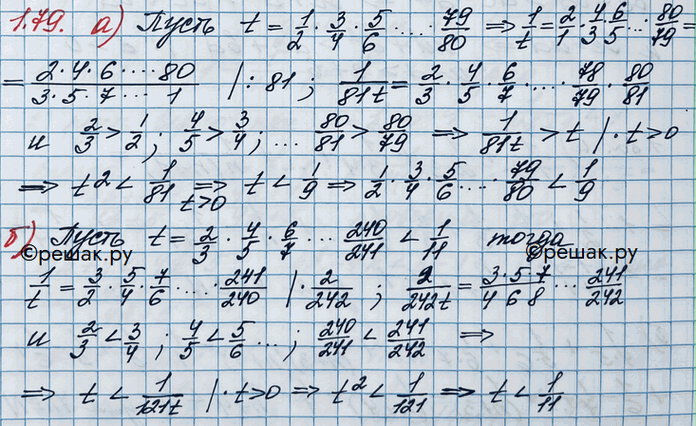 1.79. а) Пусть t = 1/2 · 3/4 · 5/6 · ... · 79/80 ⇒ 1/t = 2/1 · 4/3 · 6/5 ... · 80/79 =
= (2·4·6 ····· 80)/(3·5·7 ····· 1) | : 81 ; 1/(81t) = 2/3 · 4/5 · 6/7 · ... · 78/79 · 80/81
и 2/3 > 1/2 ; 4/5 > 3/4 ; ... 80/81 > 80/79 ⇒ 1/(81t) > t | · t > 0
⇒ t² < 1/81 ⇒ (t>0) t < 1/9 ⇒ 1/2 · 3/4 · 5/6 · ... · 79/80 < 1/9
б) Пусть t = 2/3 · 4/5 · 6/7 · ... 240/241 < 1/11 тогда
©решак.ру ©решак.ру
1/t = 3/2 · 5/4 · 7/6 · ... · 241/240 | · 2/242 ; 2/(242t) = (3·5·7)/(4 6 8) ... · 241/242
и 2/3 < 3/4 ; 4/5 < 5/6 ... ; 240/241 < 241/242 ⇒
⇒ t < 1/(121t) | · t > 0 ⇒ t² < 1/121 ⇒ t < 1/11